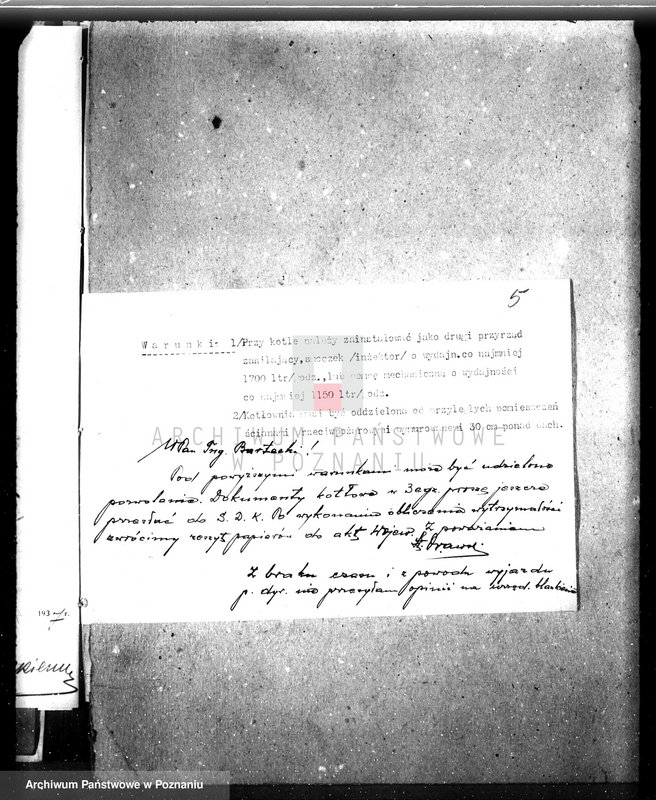 5
Warunki: 1/Przy kotle należy zainstalować jako drugi przyrząd
zasilający, smoczek /inżektor/ o wydajn.co najmniej
1700 ltr/godz., lub pompę mechaniczną o wydajności
co najmniej 1150 ltr/godz.
2/Kotłownia musi być oddzielona od przyległych pomieszczeń
ścianami przeciwpożarowymi wymurowanemi 30 cm ponad dach.
ARCHIWUM PAŃSTWOWE
W POZNANIU
WPan Ing. Bartecki!
Pod powyższymi warunkami może być udzielone
pozwolenie. Dokumenty kotłowe w 3 egz. proszę jeszcze
przesłać do S.D.K. Po wykonaniu obliczenia wytrzymałości
zwrócimy zeszyt papierów do akt Wojew. Z poważaniem
Z braku czasu i z powodu wyjazdu
p. dyr. nie przesyłam opinii na urzęd.
193
Archiwum Państwowe w Poznaniu